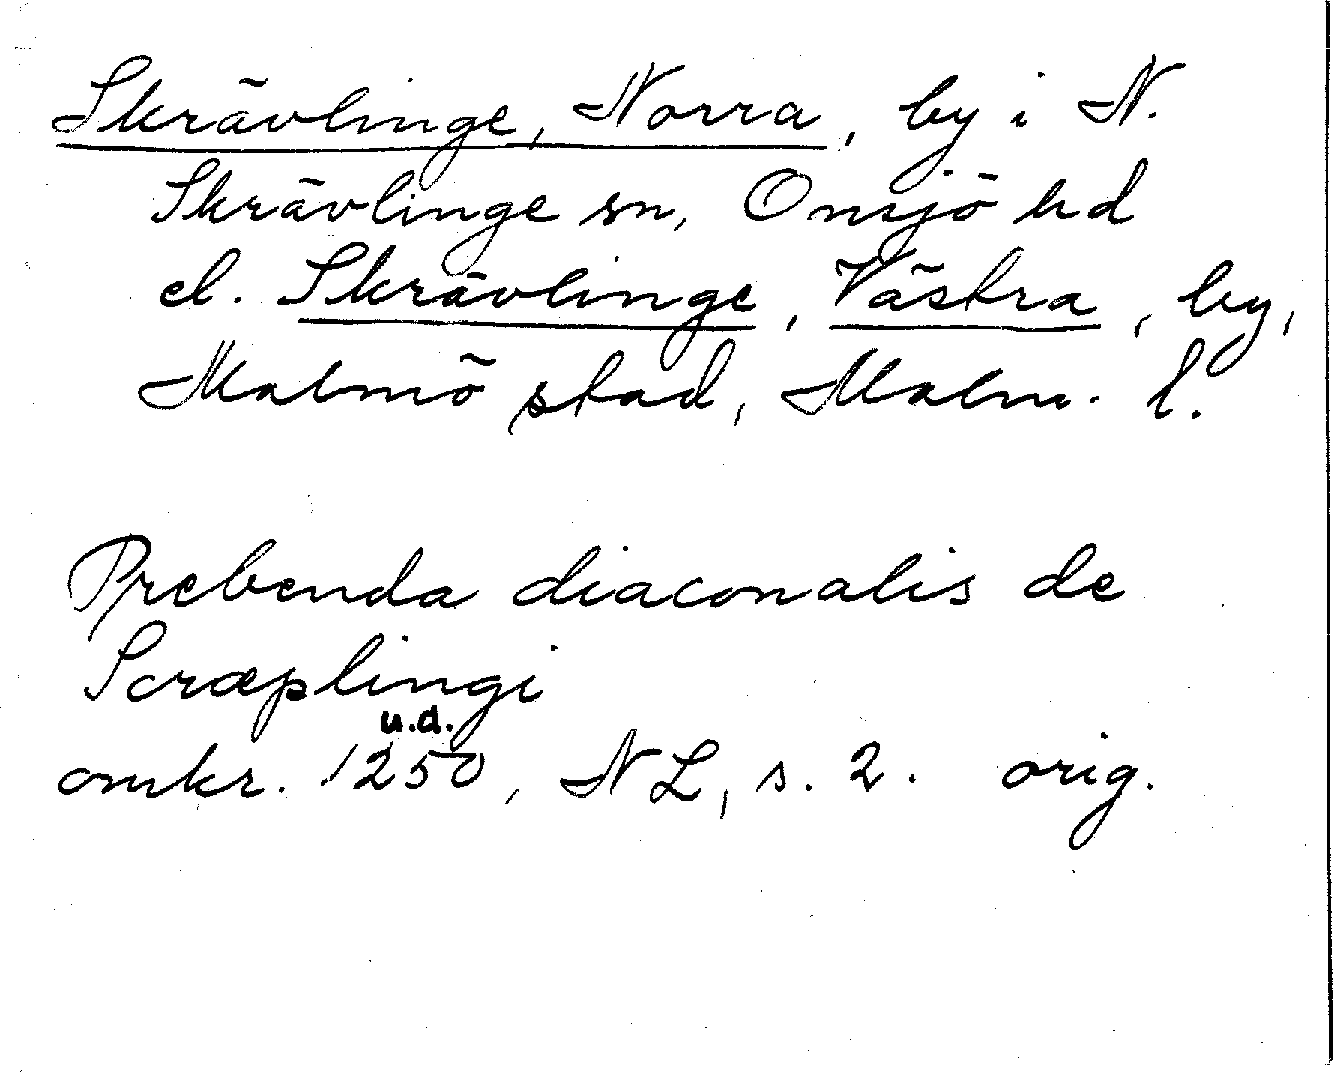 Skrävlinge, Norra, by i N.
Skrävlinge sn, Onsjö hd
el. Skrävlinge, Västra, by,
Malmö stad, Malm. l.
Prebenda diaconalis de
Scræplingi
u.d.
omkr. 1250, NL, s. 2. orig.